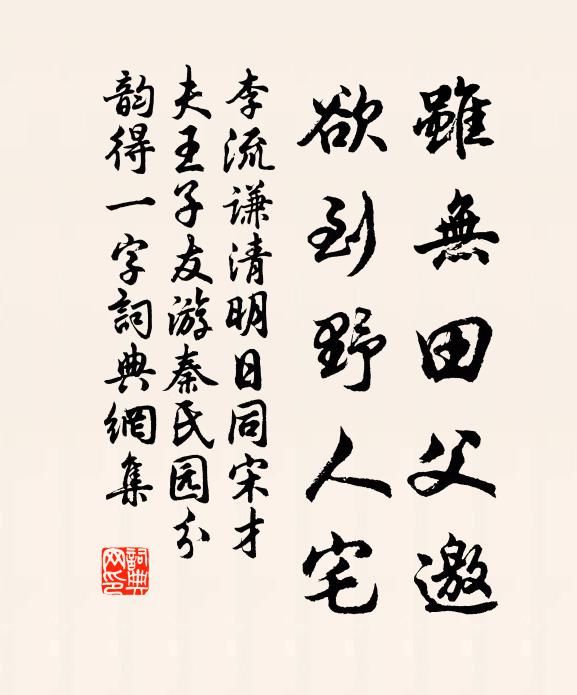 雖無田父邀
欲到野人宅
李流谦清明日同宋才
夫王子友游秦氏园分
韵得一字詞典網集
詞典网印